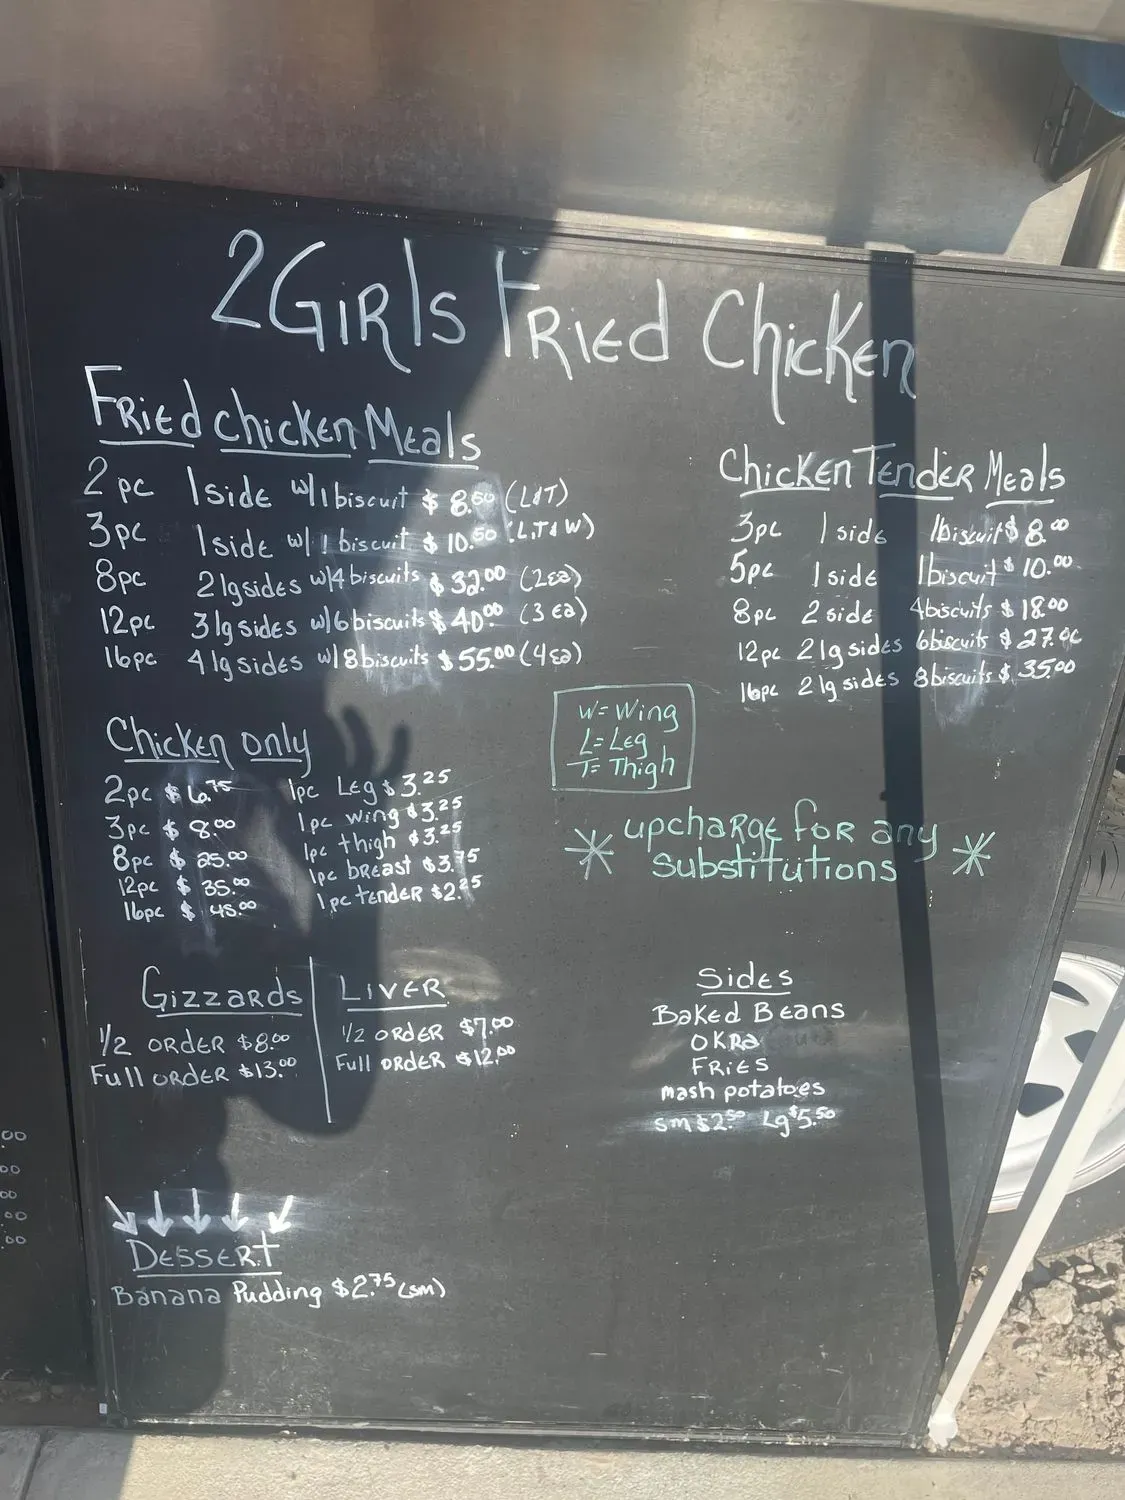 2 Girls Fried Chicken
Fried Chicken Meals
2 pc 1 side w/1 biscuit $8.50 (L&T)
3pc 1 side w/1 biscuit $10.50 (L,T&W)
8pc 2 lg sides w/4 biscuits $32.00 (2ea)
12pc 3 lg sides w/6 biscuits $40.00 (3 ea)
16pc 4 lg sides w/8 biscuits $55.00 (4ea)
Chicken Tender Meals
3pc 1 side 1biscuit $8.00
5pc 1 side 1biscuit $10.00
8pc 2 side 4biscuits $18.00
12pc 2 lg sides 6biscuits $27.00
16pc 2 lg sides 8biscuits $35.00
W=Wing
L=Leg
T=Thigh
* upcharge for any substitutions *
Chicken only
2pc $6.75
3pc $8.00
8pc $25.00
12pc $35.00
16pc $45.00
1pc Leg $3.25
1pc wing $3.25
1pc thigh $3.25
1pc breast $3.75
1pc tender $2.25
Gizzards
1/2 order $8.00
Full order $13.00
Liver
1/2 order $7.00
Full order $12.00
Sides
Baked Beans
Okra
Fries
mash potatoes
sm $2.50 Lg $5.50
Dessert
Banana Pudding $2.75 (sm)